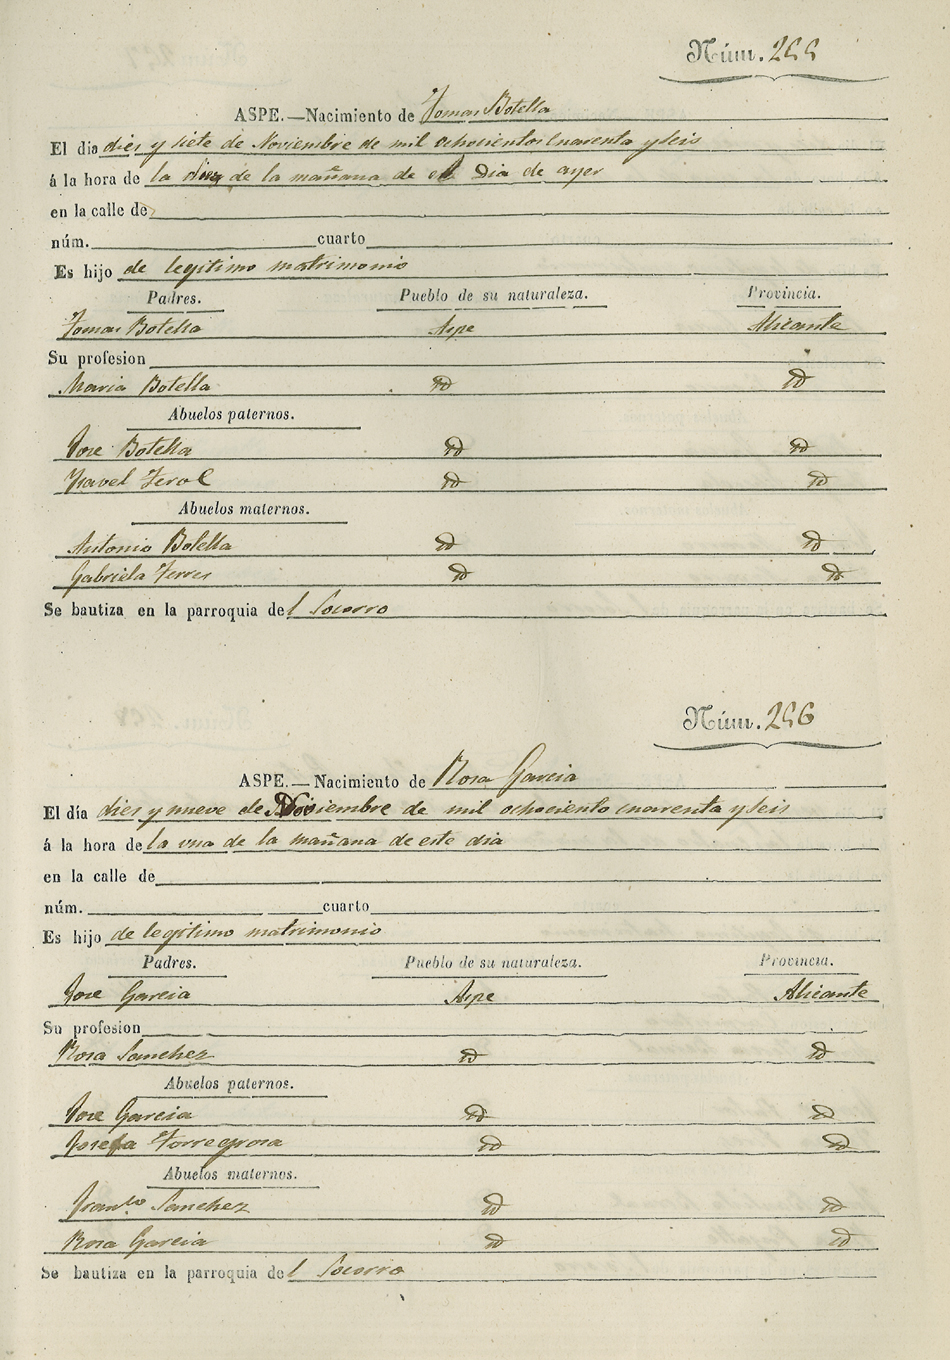 Núm. 255
ASPE.—Nacimiento de Tomas Botella
El dia dies y siete de Noviembre de mil ochocientos cuarenta y seis
á la hora de la diez de la mañana de el Dia de ayer
en la calle de
núm. cuarto
Es hijo de legitimo matrimonio
Padres. Pueblo de su naturaleza. Provincia.
Tomas Botella Aspe Alicante
Su profesion
Maria Botella id id
Abuelos paternos.
Jose Botella id id
Ysavel Terol id id
Abuelos maternos.
Antonio Botella id id
Gabriela Ferres id id
Se bautiza en la parroquia del Socorro
Núm. 256
ASPE.—Nacimiento de Rosa Garcia
El día dies y nueve de Noviembre de mil ochociento cuarenta y seis
á la hora de la una de la mañana de este dia
en la calle de
núm. cuarto
Es hijo de legitimo matrimonio
Padres. Pueblo de su naturaleza. Provincia.
Jose Garcia Aspe Alicante
Su profesion
Rosa Sanchez id id
Abuelos paternos.
Jose Garcia id id
Josefa Torregrosa id id
Abuelos maternos.
Franco Sanchez id id
Rosa Garcia id id
Se bautiza en la parroquia del Socorro